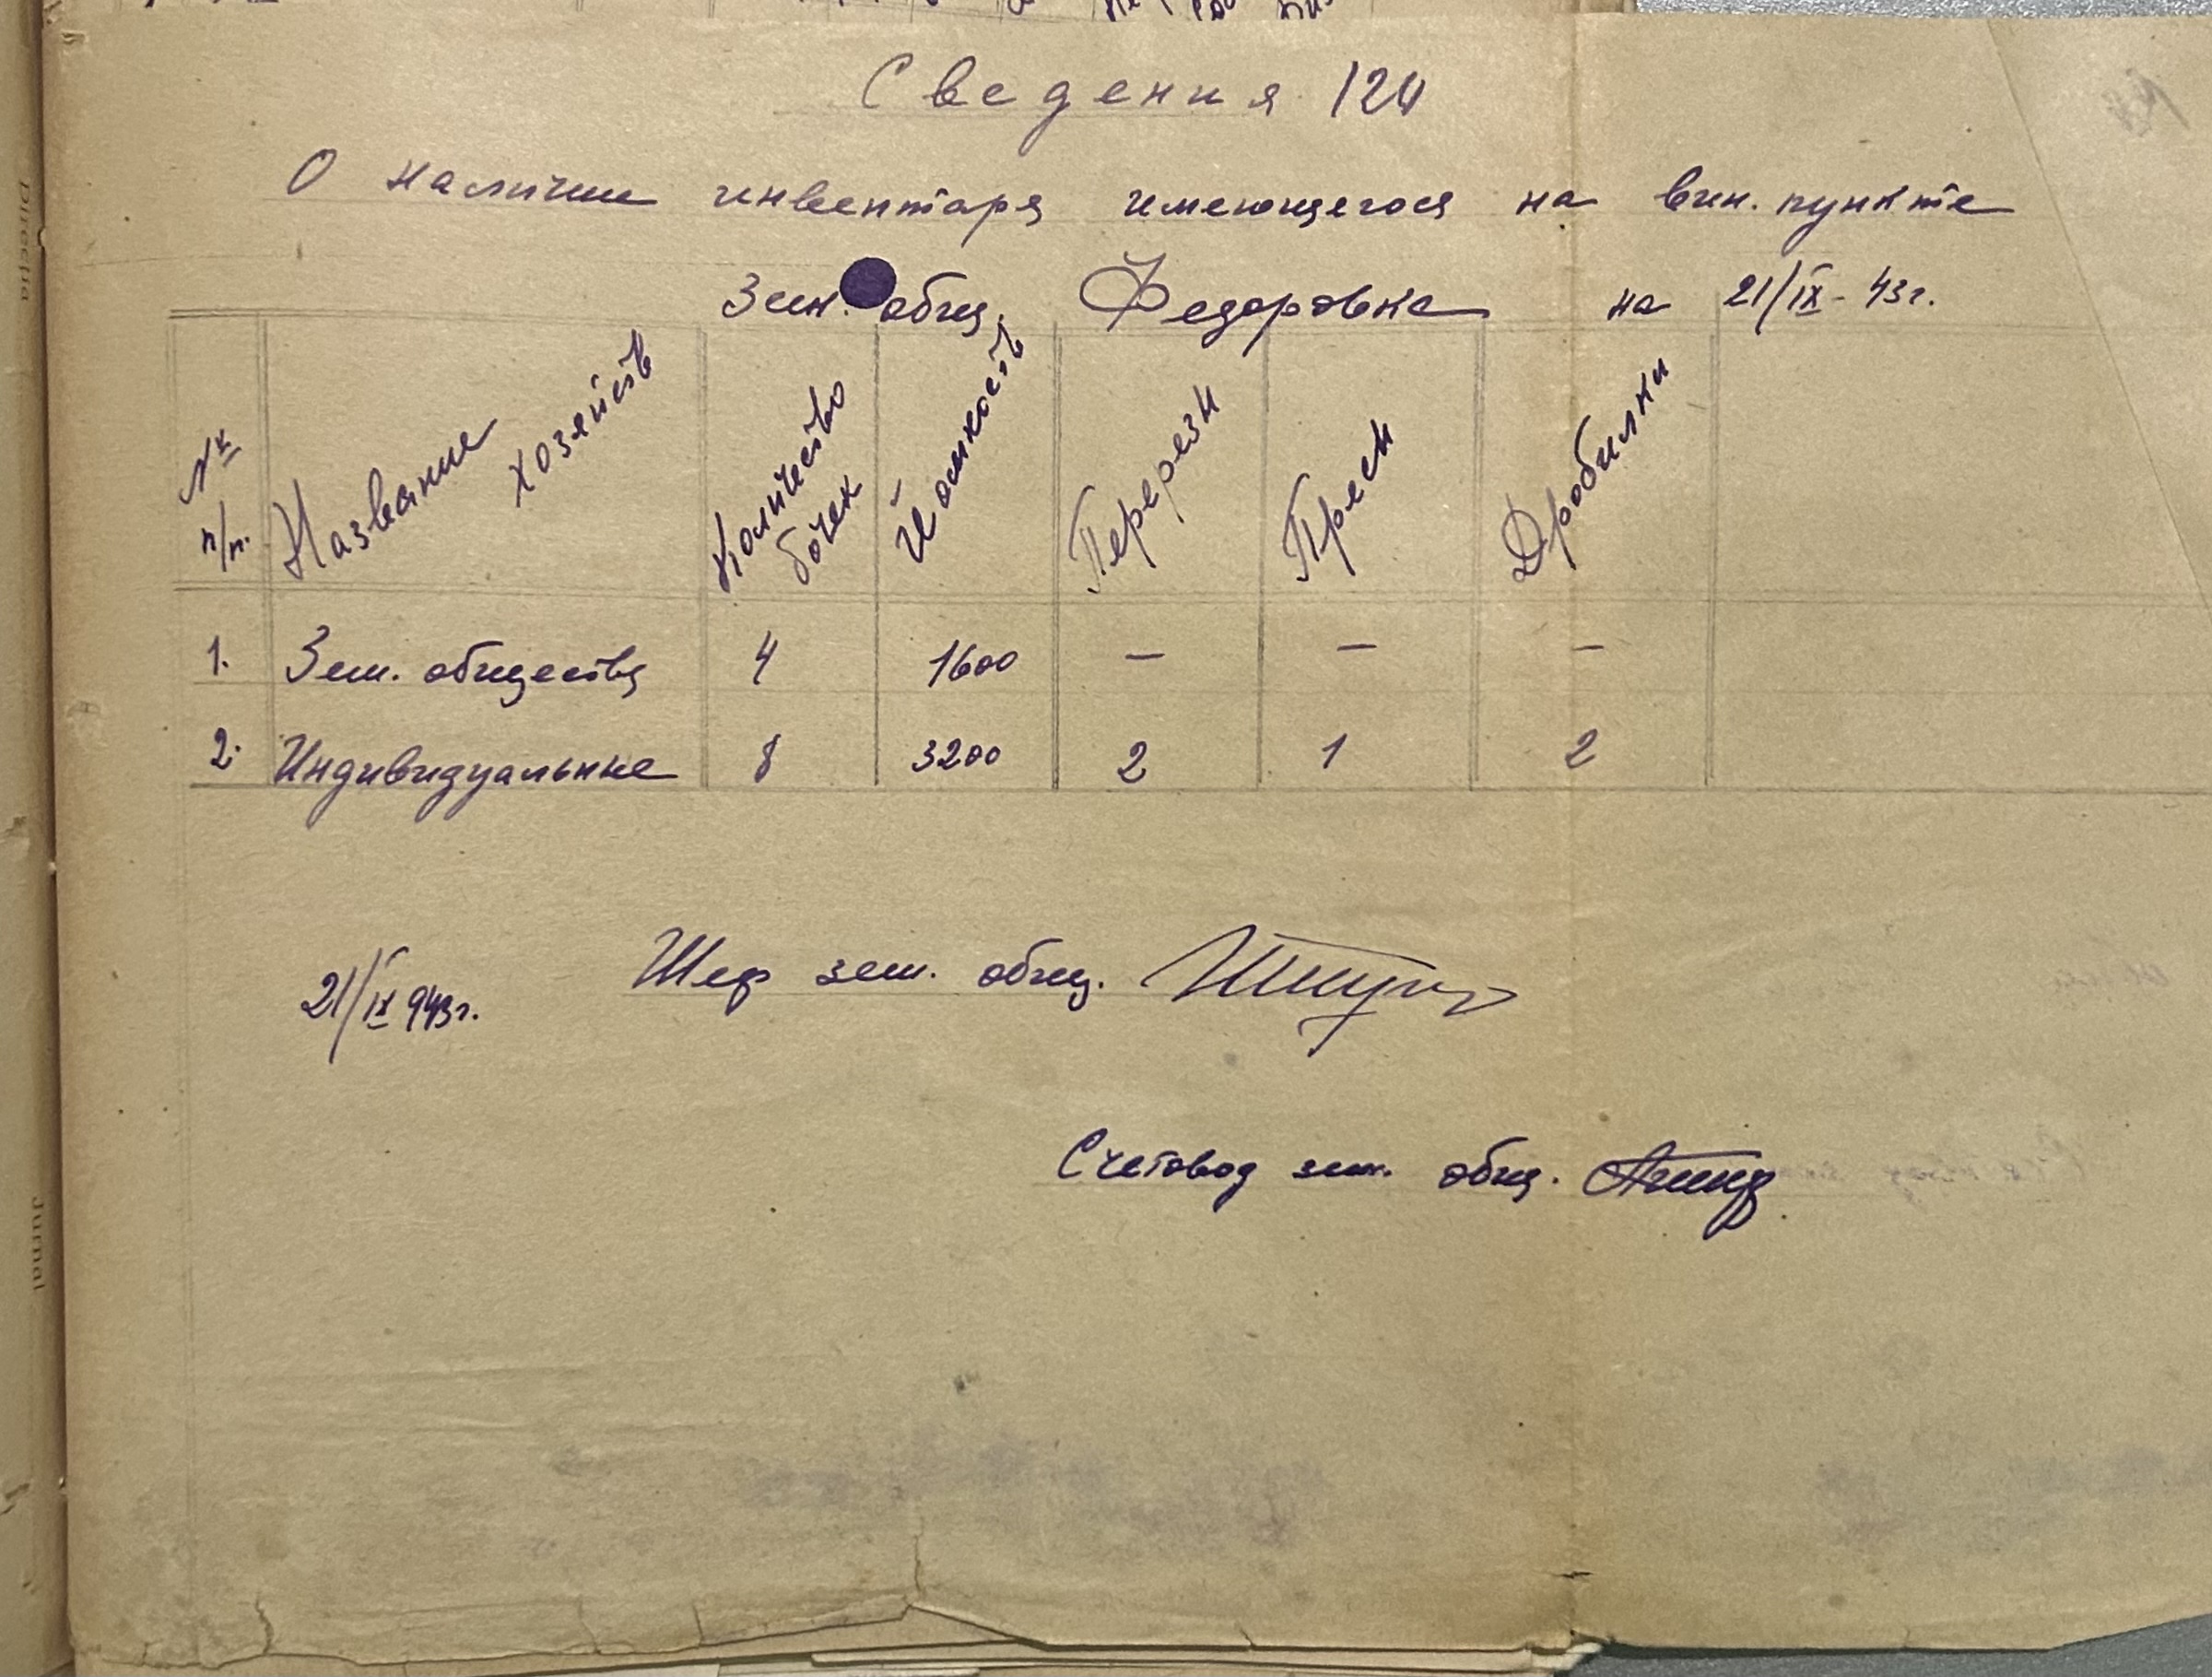 Сведения 124
О наличии инвентаря имеющегося на вин. пункте
Зем. общ. Федоровка на 21/IX-43г.
№№ п/п. Название хозяйств Количество бочек Йомкость Перерезы Пресы Дробилки
1. Зем. общества 4 1600 — — —
2. Индивидуальные 8 3200 2 1 2
21/IX 943г. Шеф зем. общ.
Счетовод зем. общ.